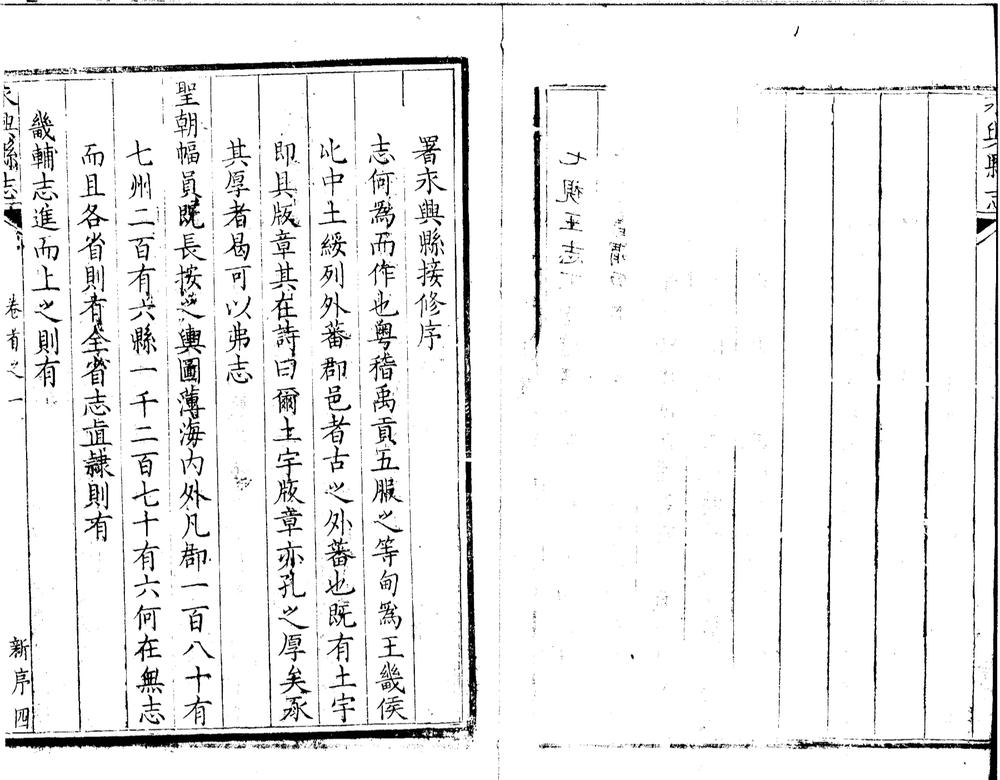 永興縣志
署永興縣接修序
志何爲而作也粵稽禹貢五服之等甸爲王畿侯
比中土綏列外蕃郡邑者古之外蕃也既有土宇
即具版章其在詩曰爾土宇版章亦孔之厚矣承
其厚者曷可以弗志
聖朝幅員既長按之輿圖薄海內外凡郡一百八十有
七州二百有六縣一千二百七十有六何在無志
而且各省則有全省志直隸則有
畿輔志進而上之則有
永興縣志
卷首之一
新序 四